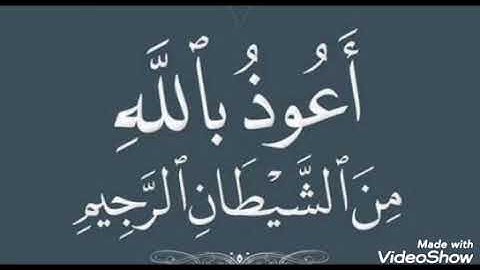 أَعُوذُ بِٱللَّهِ
مِنَ ٱلشَّيْطَانِ ٱلرَّجِيمِ
Made with
VideoShow